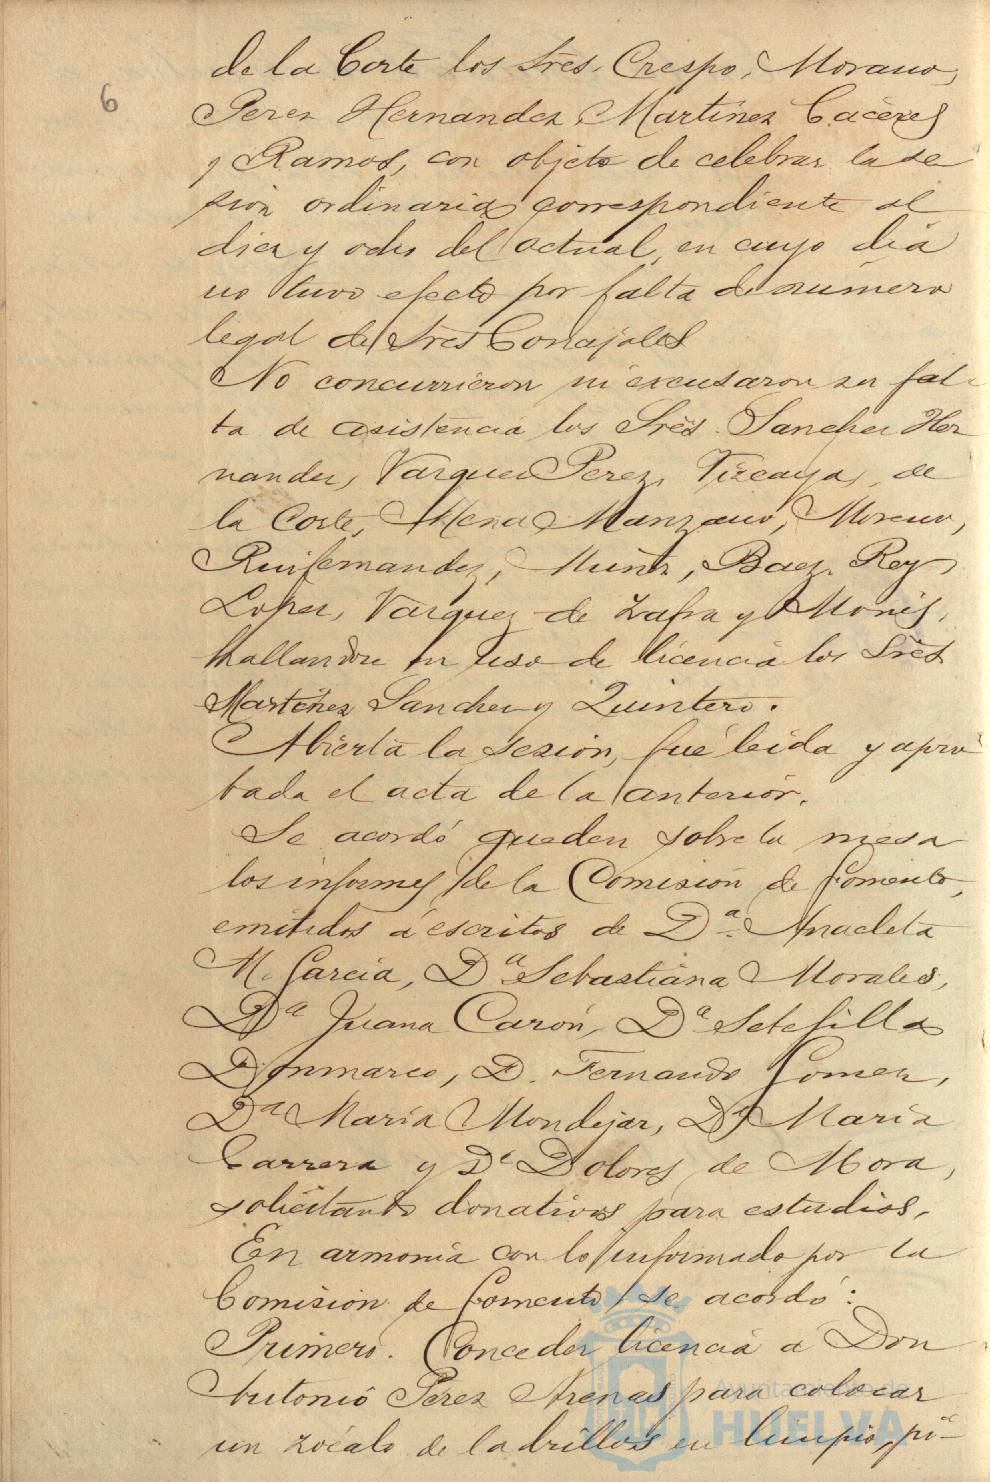 6
de la Corte los Sres. Crespo, Morano,
Perez Hernandez, Martinez Cáceres
y Ramos, con objeto de celebrar la se
sion ordinaria correspondiente al
diez y ocho del actual, en cuyo dia
no tuvo efecto por falta de número
legal de Sres Concejales
No concurrieron ni escusaron su fal-
ta de asistencia los Sres. Sanchez Her
nandez, Vazquez Perez, Vizcaya, de
la Corte, Mena, Manzano, Moreno,
Ruifernandez, Muñiz, Baez, Rey,
Lopez, Vazquez de Zafra y Monis,
hallandose en uso de licencia los Sres
Martinez Sanchez y Quintero.
Abierta la sesión, fué leida y apro
bada el acta de la anterior.
Se acordó queden sobre la mesa
los informes de la Comisión de Fomento,
emitidos á escritos de Dª. Anacleta
M. Garcia, Dª Sebastiana Morales,
Dª Juana Carón, Dª Setefilla
Dinmarco, D. Fernando Gomez,
Dª Maria Mondejar, Dª Maria
Carrera y Dª Dolores de Mora,
solicitando donativos para estudios.
En armonia con lo informado por la
Comision de Fomento, se acordó:
Primero. Conceder licencia á Don
Antonio Perez Arenas para colocar
un zócalo de ladrillos en limpio, pi-
Ayuntamiento de
HUELVA